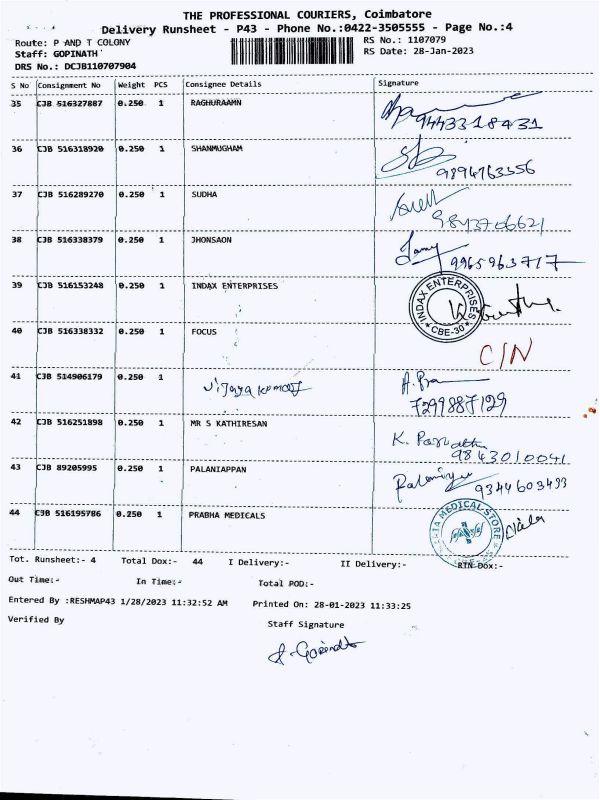 THE PROFESSIONAL COURIERS, Coimbatore
Delivery Runsheet - P43 - Phone No.:0422-3505555 - Page No.:4
Route: P AND T COLONY RS No.: 1107079
Staff: GOPINATH RS Date: 28-Jan-2023
DRS No.: DCJB110707904
S No Consignment No Weight PCS Consignee Details Signature
35 CJB 516327887 0.250 1 RAGHURAAMN
9443318431
36 CJB 516318920 0.250 1 SHANMUGHAM
9894763556
37 CJB 516289270 0.250 1 SUDHA
9843706621
38 CJB 516338379 0.250 1 JHONSAON
9965963717
39 CJB 516153248 0.250 1 INDAX ENTERPRISES INDAX ENTERPRISES CBE-30
40 CJB 516338332 0.250 1 FOCUS
C/N
41 CJB 514906179 0.250 1 Vijaya kumar
7299887129
42 CJB 516251898 0.250 1 MR S KATHIRESAN K.
9843010041
43 CJB 89205995 0.250 1 PALANIAPPAN
9344603493
44 CJB 516195786 0.250 1 PRABHA MEDICALS MEDICAL STORE
Tot. Runsheet:- 4 Total Dox:- 44 I Delivery:- II Delivery:- RTN Dox:-
Out Time:- In Time:- Total POD:-
Entered By :RESHMAP43 1/28/2023 11:32:52 AM Printed On: 28-01-2023 11:33:25
Verified By Staff Signature